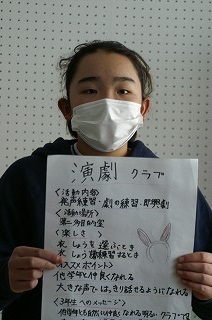 演劇 クラブ
<活動内容>
発声練習・劇の練習・即興劇
<活動場所>
第二多目的室
<楽しさ>
衣しょうを選ぶとき
衣しょう着練習するとき
<オススメポイント>
他学年と仲良くなれる
大きな声ではっきり話せるようになれる
<3年生へのメッセージ>